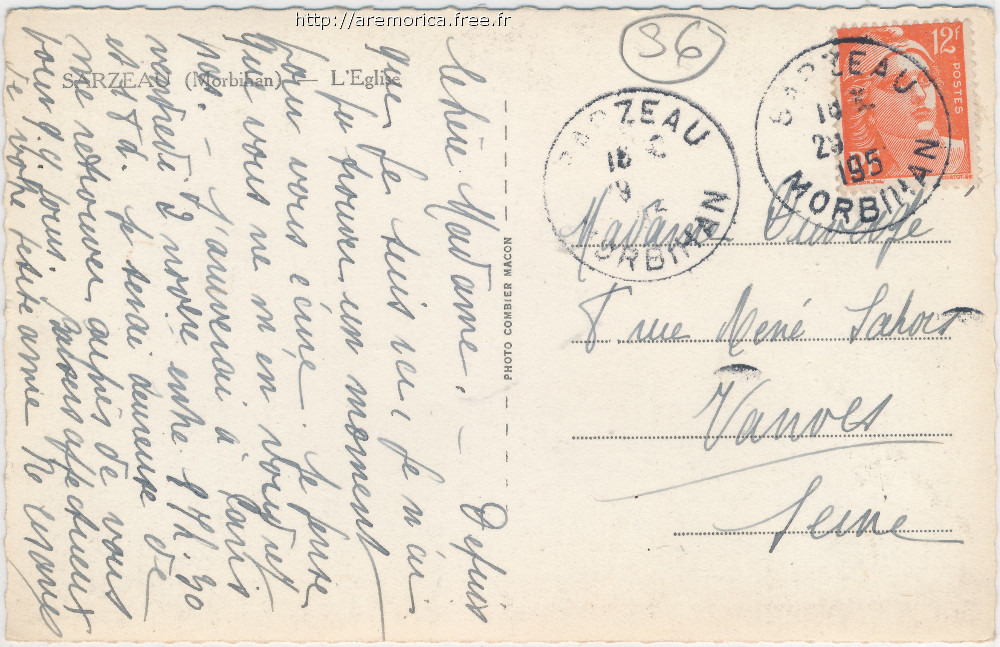 http://aremorica.free.fr
36
SARZEAU (Morbihan) — L'Eglise
12F
POSTES
SARZEAU
18
29
195
MORBIHAN
SARZEAU
18
MORBIHAN
PHOTO COMBIER MACON
Madame
8 rue René Sahors
Vanves
Seine
Chère Madame. — Depuis
que je suis ici je n'ai
pu trouver un moment
pour vous écrire. Je pense
que vous ne m'en voudrez
pas. — J'arriverai à Paris
vendredi 2 entre 17h.30
et 18 h. Je serai heureuse de
me retrouver auprès de vous
pour
Baisers affectueux
de votre petite amie